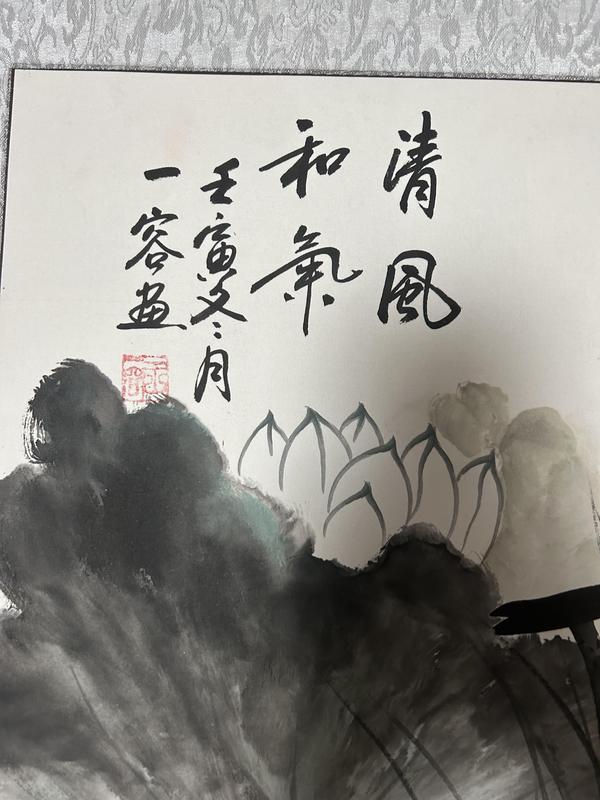 清風
和氣
壬寅冬月
一容画